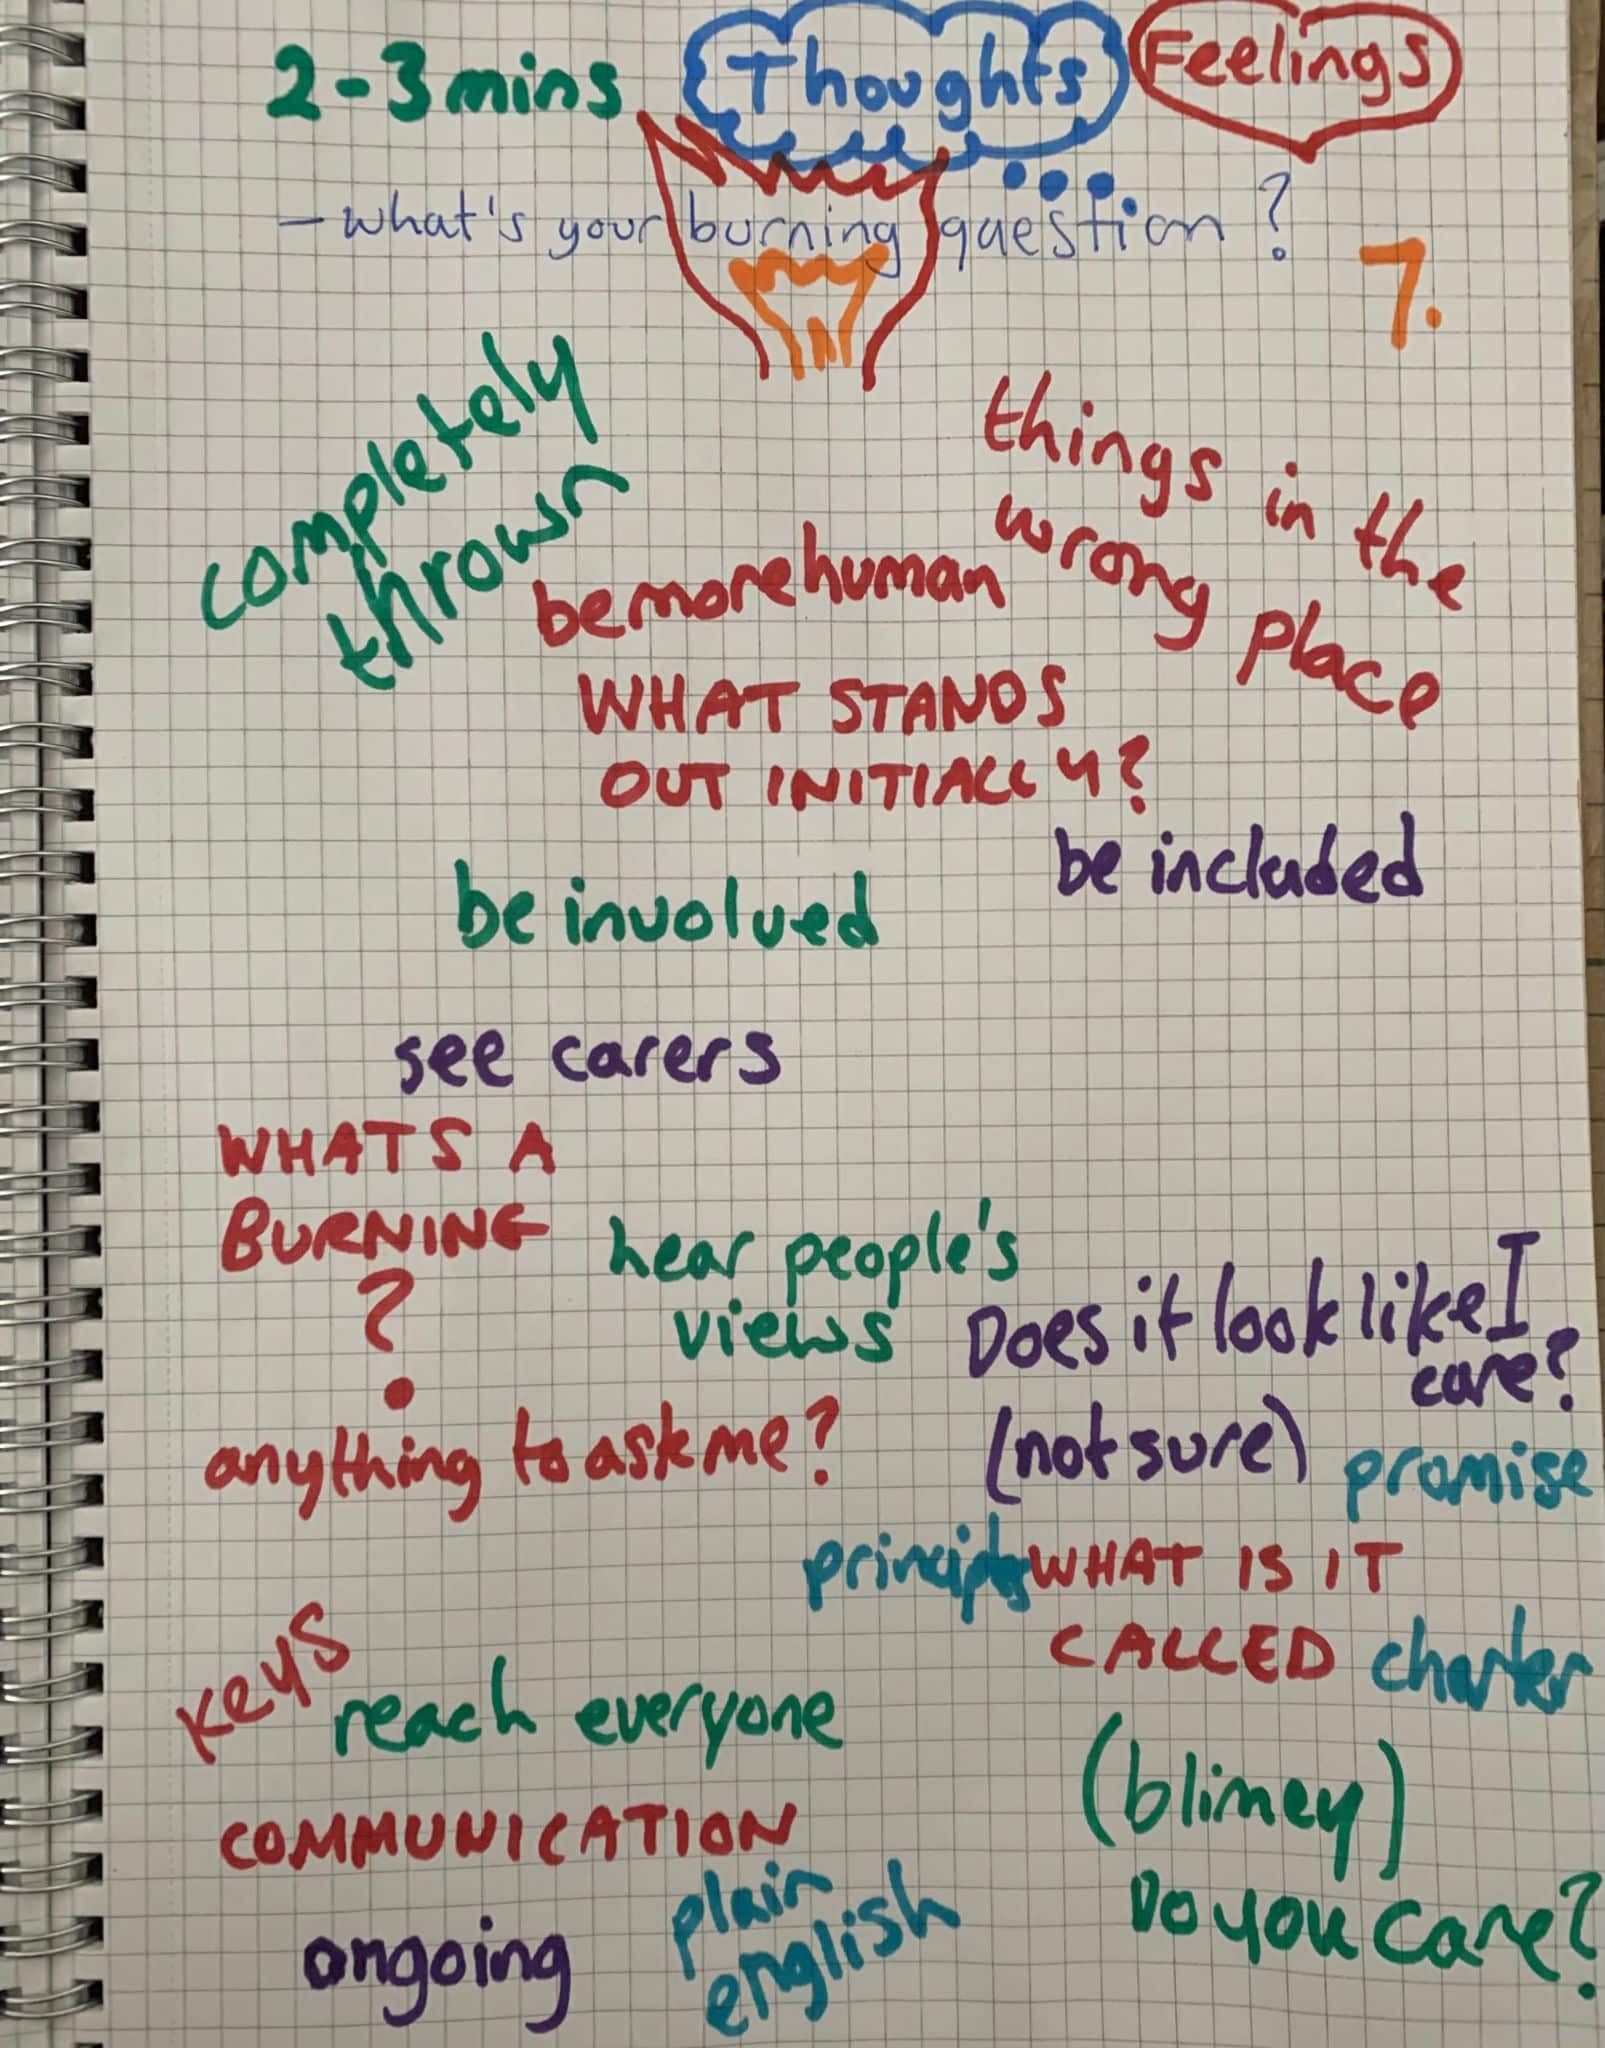 2-3 mins
Thoughts
Feelings
- what's your burning question?
7.
completely
thrown
things in the
wrong place
be more human
WHAT STANDS
OUT INITIALLY?
be included
be involved
see carers
WHATS A
BURNING
?
hear people's
views
Does it look like I
care?
(not sure)
anything to ask me?
promise
principles
WHAT IS IT
CALLED
charter
keys
reach everyone
(blimey)
Do you care?
COMMUNICATION
plain
english
ongoing